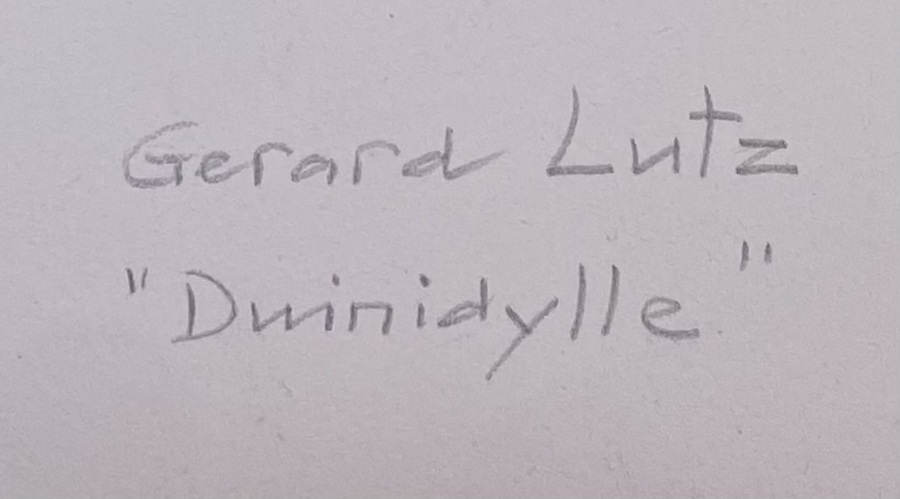 Gerard Lutz
"Duinidylle"